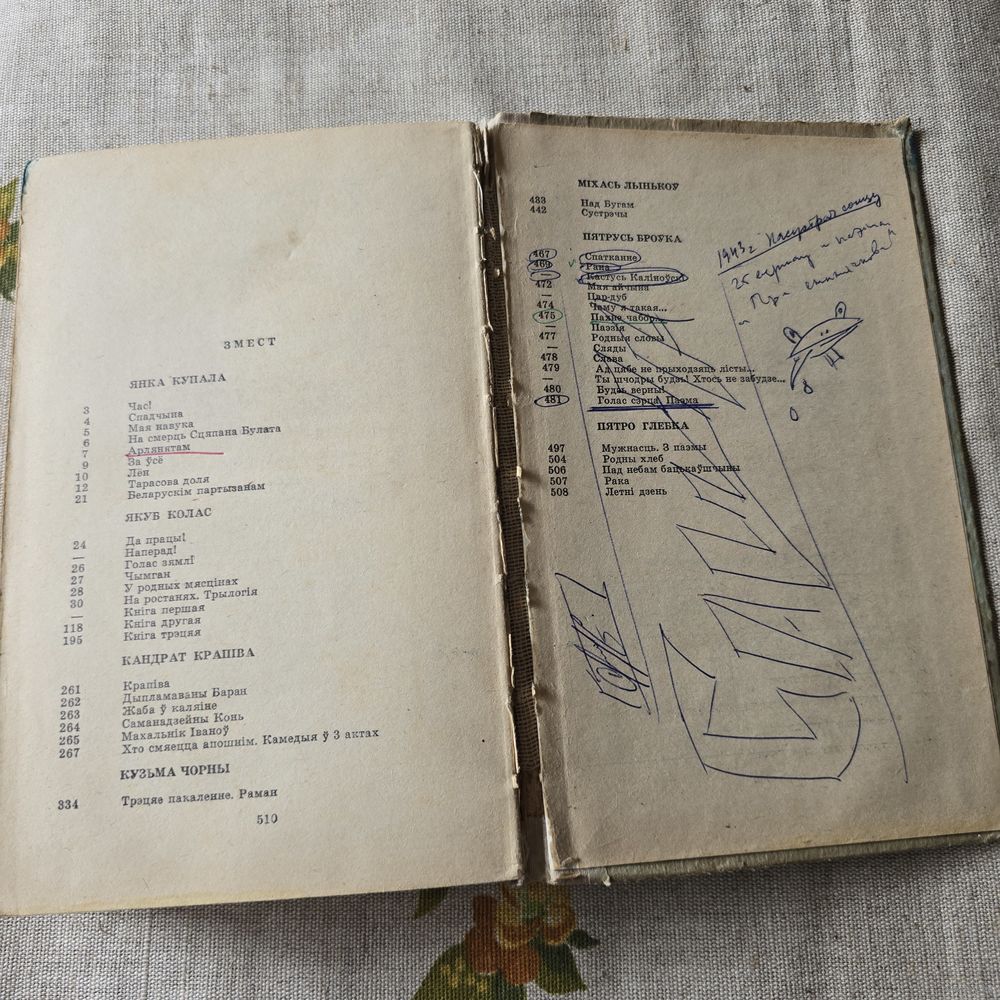 ЗМЕСТ
ЯНКА КУПАЛА
3 Час!
4 Спадчына
5 Мая навука
6 На смерць Сцяпана Булата
7 Арлянятам
9 За ўсё
10 Лён
12 Тарасова доля
21 Беларускім партызанам
ЯКУБ КОЛАС
24 Да працы!
— Наперад!
26 Голас зямлі
27 Чымган
28 У родных мясцінах
30 На ростанях. Трылогія
— Кніга першая
118 Кніга другая
195 Кніга трэцяя
КАНДРАТ КРАПІВА
261 Крапіва
262 Дыпламаваны Баран
263 Жаба ў каляіне
264 Саманадзейны Конь
265 Махальнік Іваноў
267 Хто смяецца апошнім. Камедыя ў 3 актах
КУЗЬМА ЧОРНЫ
334 Трэцяе пакаленне. Раман
510
МІХАСЬ ЛЫНЬКОЎ
433 Над Бугам
442 Сустрэчы
ПЯТРУСЬ БРОЎКА
467 Спатканне
469 Рана
— Кастусь Каліноўскі
472 Мая айчына
— Цар-дуб
474 Чаму я такая...
475 Пахне чабор...
— Паэзія
477 Родныя словы
— Сляды
478 Слава
479 Ад цябе не прыходзяць лісты...
— Ты шчодры будзь! Хтось не забудзе...
480 Будзь верны!
481 Голас сэрца. Паэма
ПЯТРО ГЛЕБКА
497 Мужнасць. З паэмы
504 Родны хлеб
506 Пад небам бацькаўшчыны
507 Рака
508 Летні дзень
1943 г Насустрач сонцу